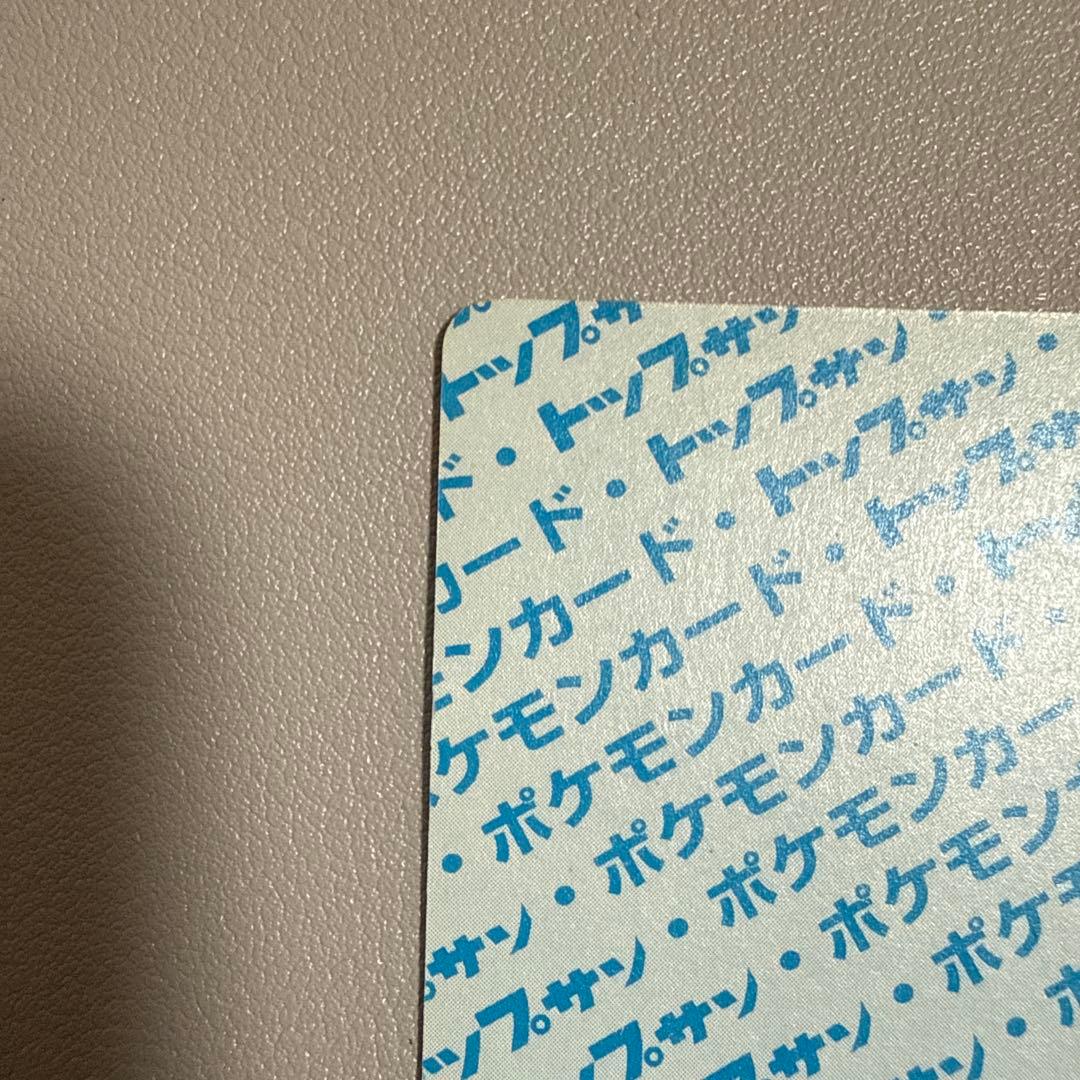 トップサ
ド・トップサン
カード・トップサン・
モンカード・トップサン・
ケモンカード・トップサ
・ポケモンカード・トッ
サン・ポケモンカード・
ップサン・ポケモンカー
プサン・ポケモン
プサン・ポケモ
ン・ポ